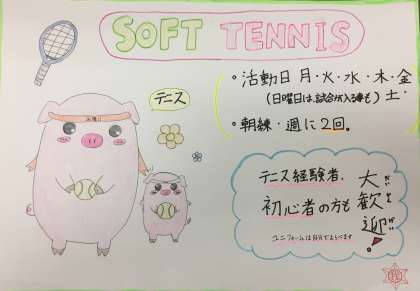 SOFT TENNIS
・活動日 月・火・水・木・金
(日曜日は、試合が入る事も) 土・
・朝練・週に2回。
テニス
テニス経験者、
初心者の方も
大歓迎!